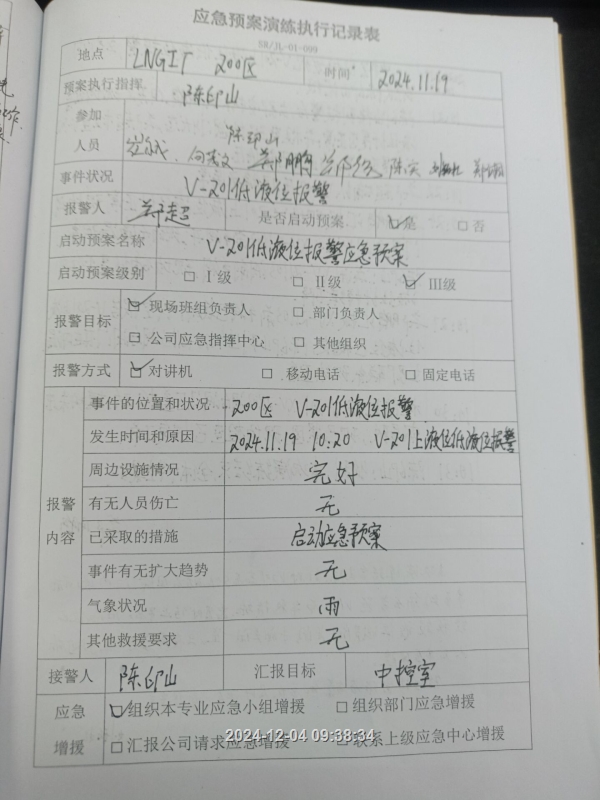 应急预案演练执行记录表
SR/JL-01-099
地点 LNG工厂 200区 时间 2024.11.19
预案执行指挥 陈印山
参加人员 陈印山
郑鹏 陈滨
事件状况 V-201低液位报警
报警人 郑超 是否启动预案 ☑是 □否
启动预案名称 V-201低液位报警应急预案
启动预案级别 □Ⅰ级 □Ⅱ级 ☑Ⅲ级
报警目标 ☑现场班组负责人 □部门负责人
□公司应急指挥中心 □其他组织
报警方式 ☑对讲机 □移动电话 □固定电话
报警内容
事件的位置和状况 200区 V-201低液位报警
发生时间和原因 2024.11.19 10:20 V-201上液位低液位报警
周边设施情况 完好
有无人员伤亡 无
已采取的措施 启动应急预案
事件有无扩大趋势 无
气象状况 雨
其他救援要求 无
接警人 陈印山 汇报目标 中控室
应急增援 ☑组织本专业应急小组增援 □组织部门应急增援
□汇报公司请求应急增援 □联系上级应急中心增援
2024-12-04 09:38:34